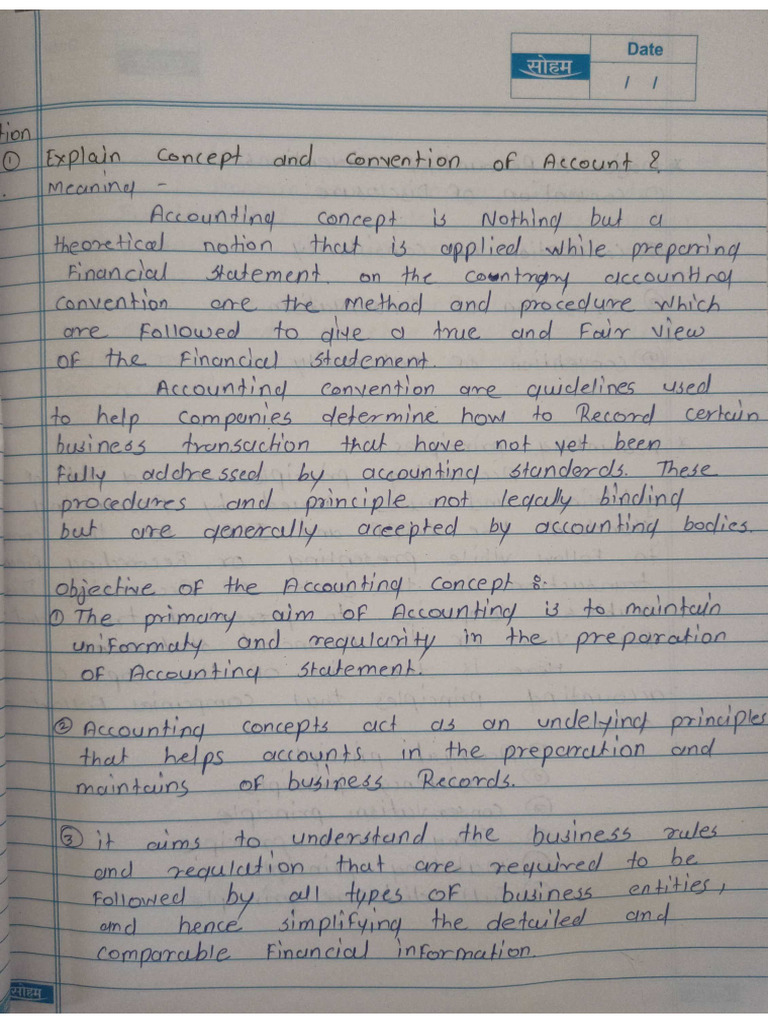 सोहम
Date
/ /
tion
① Explain concept and convention of Account ?
Meaning -
Accounting concept is Nothing but a
theoretical notion that is applied while preparing
Financial statement. on the countrary accounting
convention are the method and procedure which
are Followed to give a true and Fair view
of the Financial statement.
Accounting convention are guidelines used
to help companies determine how to Record certain
business transaction that have not yet been
fully addressed by accounting standerds. These
procedures and principle not legally binding
but are generally aceepted by accounting bodies.
objective of the Accounting concept :-
① The primary aim of Accounting is to maintain
uniformaty and regularity in the preparation
of Accounting statement.
② Accounting concepts act as an undelying principles
that helps accounts in the preparration and
maintains of business Records.
③ it aims to understand the business rules
and regulation that are required to be
Followed by all types of business entities,
and hence simplifying the detailed and
comparable Financial information.
सोहम